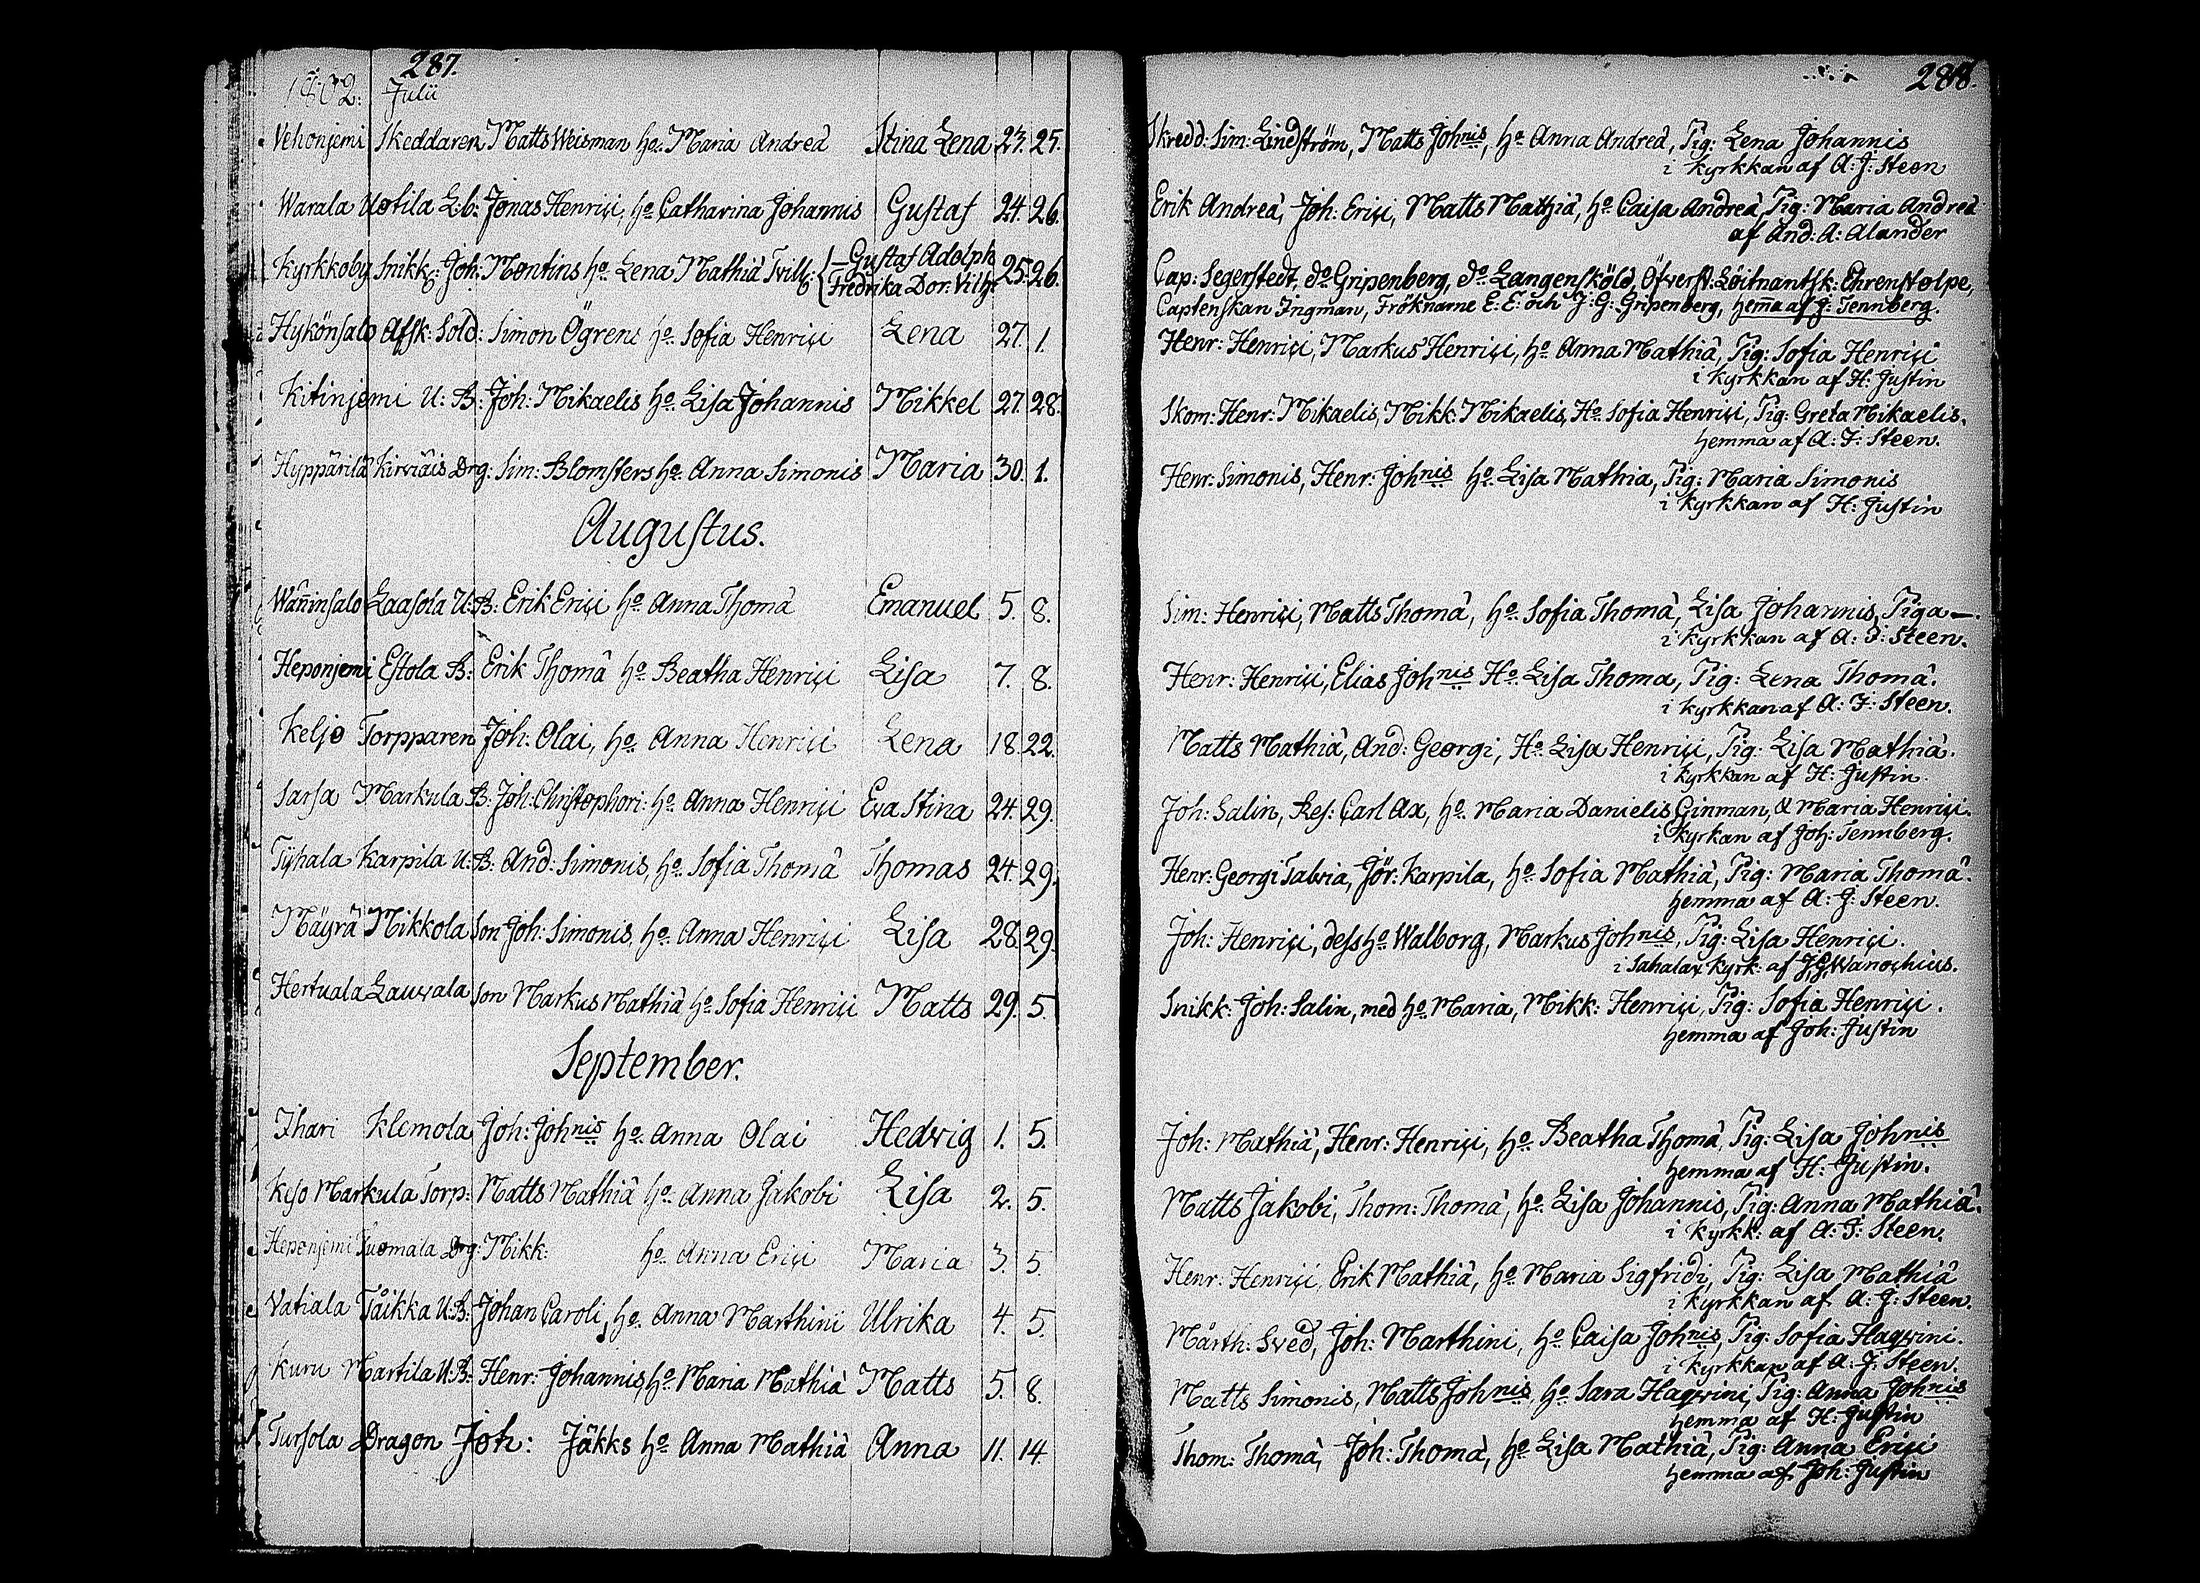 287.
1802. Julii
Vehonjemi Skeddaren Matts Weisman ho. Maria Andreà Stina Lena 23. 25.
Warala Uotila L:b: Jonas Henrici, ho Catharina Johannis Gustaf 24. 26.
Kyrkkoby Snikk: Joh: Montins ho. Lena Mathiä Tvill: { Gustaf Adolph 25. 26.
Fredrika Dor: Vilh:
Hykönsalo Afsk: Sold: Simon Ögrens ho. Sofia Henrici Lena 27. 1.
Kitinjemi U: B: Joh: Mikaelis ho. Lisa Johannis Mikkel 27. 28.
Hyppärilä Kirviäis Drg: Sim: Blomsters ho. Anna Simonis Maria 30. 1.
Augustus.
Wäninsalo Laasola U: B: Erik Erici ho Anna Thomä Emanuel 5. 8.
Heponjemi Estola B: Erik Thomä ho. Beatha Henrici Lisa 7. 8.
Keljo Torpparen Joh: Olai, ho. Anna Henrici Lena 18. 22.
Sarsa Markula B: Joh: Christophori: ho. Anna Henrici Eva Stina 24. 29.
Tÿhala Karpila U: B: And: Simonis, ho. Sofia Thomä Thomas 24. 29.
Mäyrä Mikkola Son Joh: Simonis, ho. Anna Henrici Lisa 28. 29.
Hertuala Lauvala Son Markus Mathiä ho. Sofia Henrici Matts 29. 5.
September.
Ihari Klemola Joh: Johnis ho. Anna Olai Hedvig 1. 5.
Kijo Markula Torp: Matts Mathiä ho. Anna Jakobi Lisa 2. 5.
Heponjemi Tuomala Drg: Mikk: ho. Anna Erici Maria 3. 5.
Vatiala Täikka U: B: Johan Caroli, ho. Anna Marthini Ulrika 4. 5.
Kuru Martila U: B: Henr: Johannis, ho. Maria Mathiä Matts 5. 8.
Tursola Dragon Joh: Jäkks ho. Anna Mathiä Anna 11. 14.
288.
Skredd: Sim: Lindström, Matts Johnis, ho Anna Andreä, Pig: Lena Johannis
i kyrkkan af A: J: Steen
Erik Andreä, Joh: Erici, Matts Mathiä, ho. Caisa Andreä, Pig: Maria Andreä
af And: A: Alander
Cap: Segerstedt, do Gripenberg, do Langensköld, Öfverst: Löitnantsk: Ehrenstolpe,
Captenskan Ingman, Fröknarne E: E: och J: G: Gripenberg, hema af J: Tennberg.
Henr: Henrici, Markus Henrici, ho. Anna Mathiä, Pig: Sofia Henrici
i kyrkkan af H: Justin
Skom: Henr: Mikaelis, Mikk: Mikaelis, Ho. Sofia Henrici, Pig: Greta Mikaelis.
hemma af A: J: Steen.
Henr: Simonis, Henr: Johnis ho. Lisa Mathia, Pig: Maria Simonis
i kyrkkan af H: Justin
Sim: Henrici, Matts Thomä, ho. Sofia Thomä, Lisa Johannis, Piga —.
i kyrkkan af A: J: Steen.
Henr: Henrici, Elias Johnis Ho. Lisa Thoma, Pig: Lena Thomä.
i kyrkkan af A: J: Steen.
Matts Mathiä, And: Georgi, Ho. Lisa Henrici, Pig: Lisa Mathiä.
i kyrkkan af H: Justin.
Joh: Salin, Res: Carl Ax, ho. Maria Danielis Ginman, & Maria Henrici.
i kyrkan af Joh: Tennberg.
Henr: Georgi Talvia, Jör: Karpila, ho. Sofia Mathiä, Pig: Maria Thomä.
hemma af A: J: Steen.
Joh: Henrici, dess ho Walborg, Markus Johnis, Pig: Lisa Henrici.
i Sahalax kyrk: af J. G. Wanochius.
Snikk: Joh: Salin, med ho. Maria, Mikk: Henrici, Pig: Sofia Henrici.
hemma af Joh: Justin
Joh: Mathiä, Henr: Henrici, ho Beatha Thomä, Pig: Lisa Johnis
hemma af H: Justin.
Matts Jakobi, Thom: Thomä, ho. Lisa Johannis, Pig: Anna Mathiä.
i kyrkk: af A: J: Steen.
Henr: Henrici, Erik Mathiä, ho. Maria Sigfridi, Pig: Lisa Mathiä
i kyrkkan af A: J: Steen.
Märth: Sved, Joh: Marthini, ho Caisa Johnis, Pig: Sofia Haqvini.
i kyrkkan af A: J: Steen.
Matts Simonis, Matts Johnis, ho. Sara Haqvini, Pig: Anna Johnis
hemma af H: Justin
Thom: Thomä, Joh: Thomä, ho Lisa Mathiä, Pig: Anna Erici
hemma af Joh: Justin